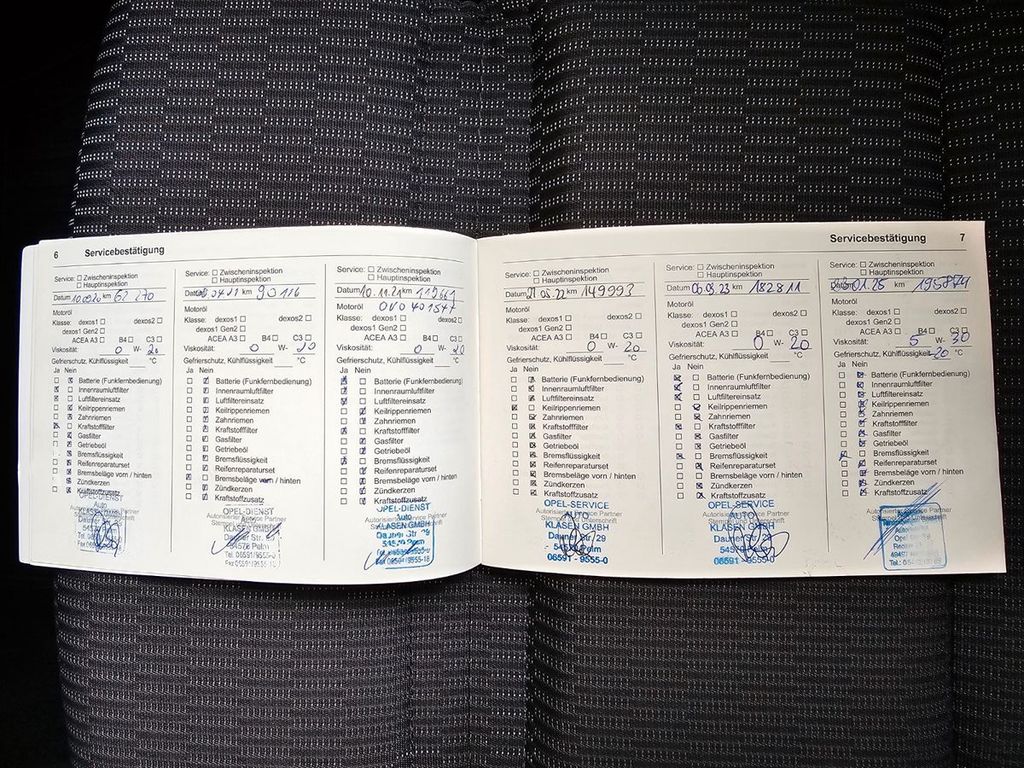 6 Servicebestätigung
Service: ☐ Zwischeninspektion
☐ Hauptinspektion
Datum km 62 270
Motoröl
Klasse: dexos1 ☐ dexos2 ☐
dexos1 Gen2 ☐
ACEA A3 ☐ B4 ☐ C3 ☐
Viskosität: 0 W- 20
Gefrierschutz, Kühlflüssigkeit °C
Ja Nein
Batterie (Funkfernbedienung)
Innenraumluftfilter
Luftfiltereinsatz
Keilrippenriemen
Zahnriemen
Kraftstofffilter
Gasfilter
Getriebeöl
Bremsflüssigkeit
Reifenreparaturset
Bremsbeläge vorn / hinten
Zündkerzen
Kraftstoffzusatz
OPEL-DIENST
Auto
Service: ☐ Zwischeninspektion
☐ Hauptinspektion
Datum km 90 116
Motoröl
Klasse: dexos1 ☐ dexos2 ☐
dexos1 Gen2 ☐
ACEA A3 ☐ B4 ☐ C3 ☐
Viskosität: 0 W- 20
Gefrierschutz, Kühlflüssigkeit °C
Ja Nein
Batterie (Funkfernbedienung)
Innenraumluftfilter
Luftfiltereinsatz
Keilrippenriemen
Zahnriemen
Kraftstofffilter
Gasfilter
Getriebeöl
Bremsflüssigkeit
Reifenreparaturset
Bremsbeläge vorn / hinten
Zündkerzen
Kraftstoffzusatz
OPEL-DIENST
Auto
KLASEN GMBH
Dauner Str.
54570 Pelm
Tel. 06591/9555-0
Service: ☐ Zwischeninspektion
☐ Hauptinspektion
Datum 10.11.21 km
Motoröl
Klasse: dexos1 ☐ dexos2 ☐
dexos1 Gen2 ☐
ACEA A3 ☐ B4 ☐ C3 ☐
Viskosität: 0 W- 20
Gefrierschutz, Kühlflüssigkeit °C
Ja Nein
Batterie (Funkfernbedienung)
Innenraumluftfilter
Luftfiltereinsatz
Keilrippenriemen
Zahnriemen
Kraftstofffilter
Gasfilter
Getriebeöl
Bremsflüssigkeit
Reifenreparaturset
Bremsbeläge vorn / hinten
Zündkerzen
Kraftstoffzusatz
OPEL-DIENST
Auto
KLASEN GMBH
Dauner Str. 29
Servicebestätigung 7
Service: ☐ Zwischeninspektion
☐ Hauptinspektion
Datum km 149993
Motoröl
Klasse: dexos1 ☐ dexos2 ☐
dexos1 Gen2 ☐
ACEA A3 ☐ B4 ☐ C3 ☐
Viskosität: 0 W- 20
Gefrierschutz, Kühlflüssigkeit °C
Ja Nein
Batterie (Funkfernbedienung)
Innenraumluftfilter
Luftfiltereinsatz
Keilrippenriemen
Zahnriemen
Kraftstofffilter
Gasfilter
Getriebeöl
Bremsflüssigkeit
Reifenreparaturset
Bremsbeläge vorn / hinten
Zündkerzen
Kraftstoffzusatz
OPEL-SERVICE
AUTO
KLASEN GMBH
Dauner Str. 29
54570 Pelm
06591 - 9555-0
Service: ☐ Zwischeninspektion
☐ Hauptinspektion
Datum km 182811
Motoröl
Klasse: dexos1 ☐ dexos2 ☐
dexos1 Gen2 ☐
ACEA A3 ☐ B4 ☐ C3 ☐
Viskosität: 0 W- 20
Gefrierschutz, Kühlflüssigkeit °C
Ja Nein
Batterie (Funkfernbedienung)
Innenraumluftfilter
Luftfiltereinsatz
Keilrippenriemen
Zahnriemen
Kraftstofffilter
Gasfilter
Getriebeöl
Bremsflüssigkeit
Reifenreparaturset
Bremsbeläge vorn / hinten
Zündkerzen
Kraftstoffzusatz
OPEL-SERVICE
AUTO
KLASEN GMBH
Dauner Str. 29
54570 Pelm
06591 - 9555-0
Service: ☐ Zwischeninspektion
☐ Hauptinspektion
km
Motoröl
Klasse: dexos1 ☐ dexos2 ☐
dexos1 Gen2 ☐
ACEA A3 ☐ B4 ☐ C3 ☐
Viskosität: 5 W- 30
Gefrierschutz, Kühlflüssigkeit -20 °C
Ja Nein
Batterie (Funkfernbedienung)
Innenraumluftfilter
Luftfiltereinsatz
Keilrippenriemen
Zahnriemen
Kraftstofffilter
Gasfilter
Getriebeöl
Bremsflüssigkeit
Reifenreparaturset
Bremsbeläge vorn / hinten
Zündkerzen
Kraftstoffzusatz